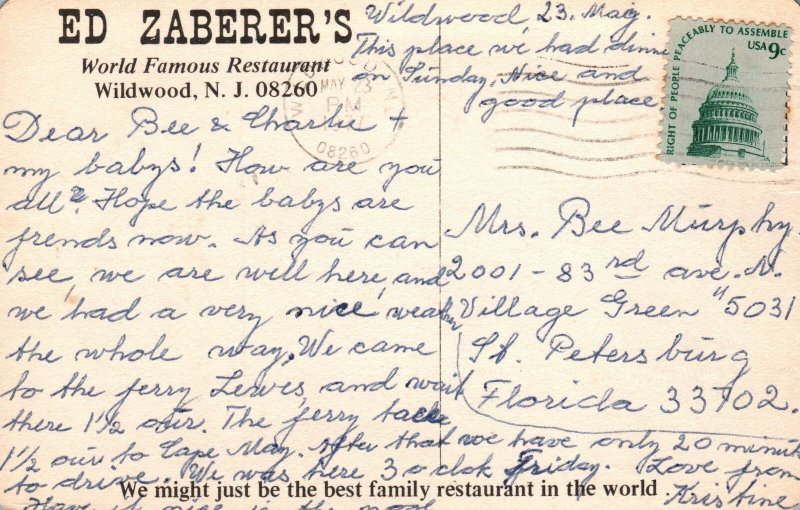 ED ZABERER'S
World Famous Restaurant
Wildwood, N. J. 08260
Wildwood 23. May.
This place we had dinne
on Sunday. Nice and
good place
MAY 23
PM
08260
RIGHT OF PEOPLE PEACEABLY TO ASSEMBLE
USA 9c
Dear Bee & Charlie +
my babys! How are you
all? Hope the babys are
frends now. As you can
see, we are well here, and
we had a very nice weather
the whole way. We came
to the ferry Lewes, and wait
there 1½ our. The ferry tacke
1½ our to Cape May. After that we have only 20 minuts
to drive. We was here 3 o clok Friday. Love from
Kristine
Have it nice in the pool
Mrs. Bee Murphy.
2001 - 83rd ave. N.
Village Green #5031
St. Petersburg
Florida 33702.
We might just be the best family restaurant in the world .